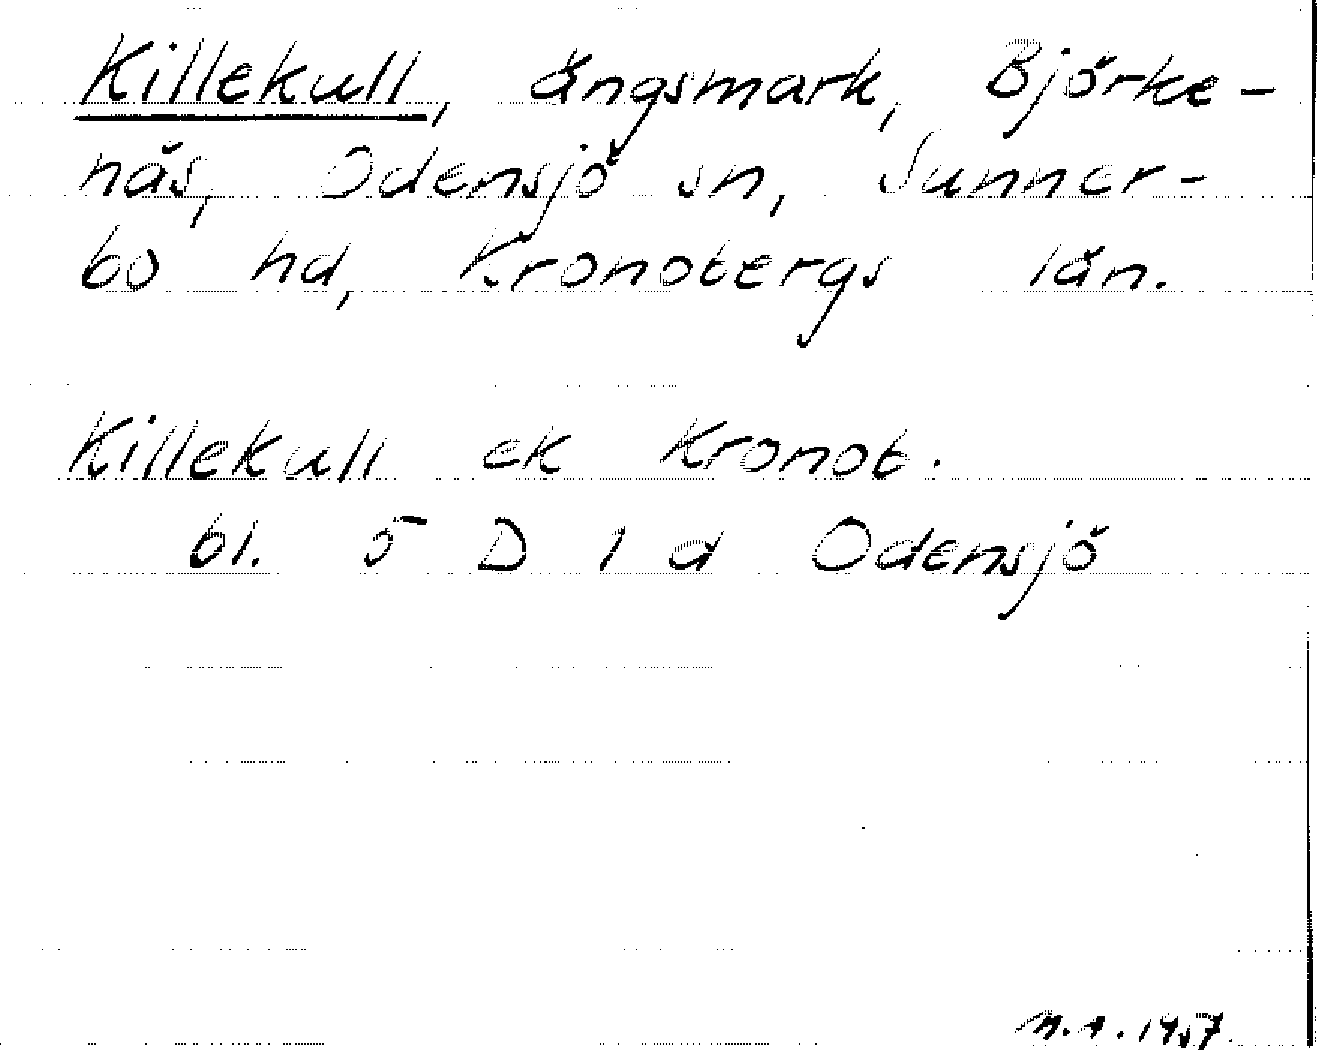 Killekull, ängsmark, Björke-
näs, Odensjö sn, Sunner-
bo hd, Kronobergs län.
Killekull ek Kronob.
bl. 5 D 1 d Odensjö
1957